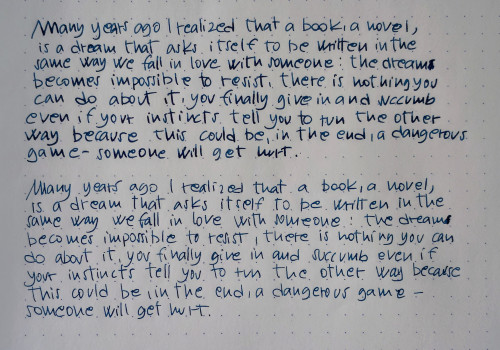 Many years ago I realized that a book, a novel,
is a dream that asks itself to be written in the
same way we fall in love with someone: the dream
becomes impossible to resist, there is nothing you
can do about it, you finally give in and succumb
even if your instincts tell you to run the other
way because this could be, in the end, a dangerous
game – someone will get hurt.
Many years ago I realized that a book, a novel,
is a dream that asks itself to be written in the
same way we fall in love with someone: the dream
becomes impossible to resist, there is nothing you can
do about it, you finally give in and succumb even if
your instincts tell you to run the other way because
this could be, in the end, a dangerous game –
someone will get hurt.